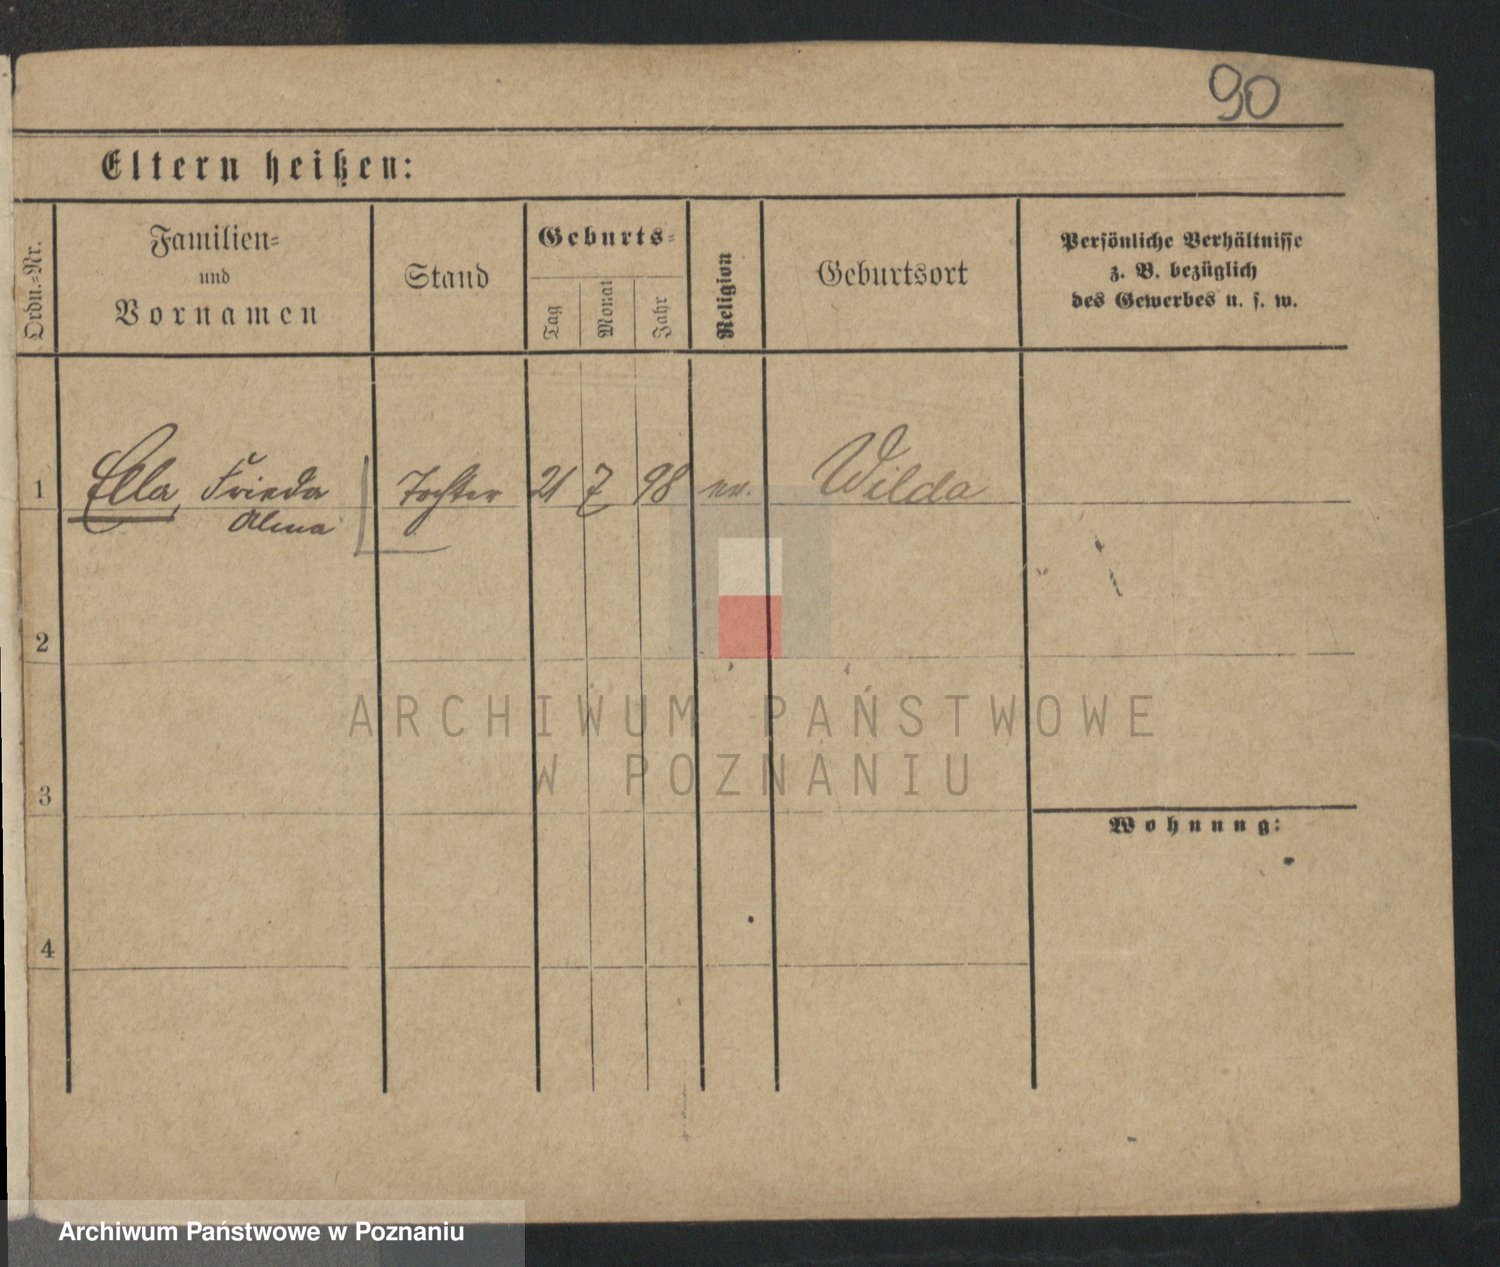 90
Eltern heißen:
Ordn.-Nr.
Familien-
und
Vornamen
Stand
Geburts-
Tag
Monat
Jahr
Religion
Geburtsort
Persönliche Verhältnisse
z. B. bezüglich
des Gewerbes u. s. w.
1 Ella Frieda Tochter 21 7 98 ev. Wilda
Alma
2
ARCHIWUM PAŃSTWOWE
W POZNANIU
3
Wohnung:
4
Archiwum Państwowe w Poznaniu